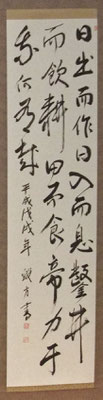 日出而作日入而息鑿井
而飲耕田而食帝力于
我何有哉
平成戊戌年
書